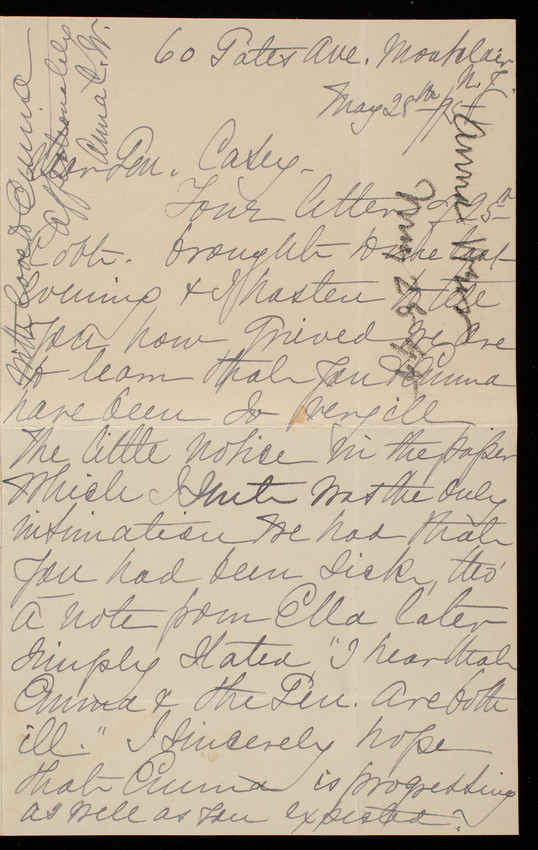 60 Gates Ave. Montclair
N.J.
May 28th /95
Dear Gen. Casey.
Your letter of 25th
brought to me last
evening & I hasten to tell
you how grieved we are
to learn that you & Emma
have been so very ill
The little notice in the paper
which I sent was the only
intimation we had that
you had been sick, tho'
a note from Ella later
simply stated "I hear that
Emma & the Gen. are both
ill." I sincerely hope
that Emma is progressing
as well as you expected.
With love to Emma
affectionately
Anna C. W.
Anna
May 28-95